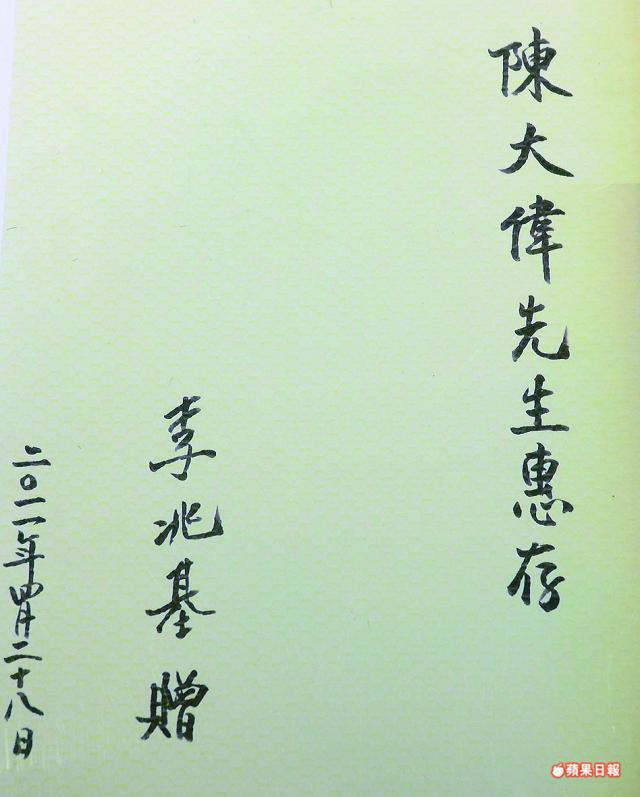 陳大偉先生惠存
李兆基 贈
二〇一一年四月二十八日
蘋果日報